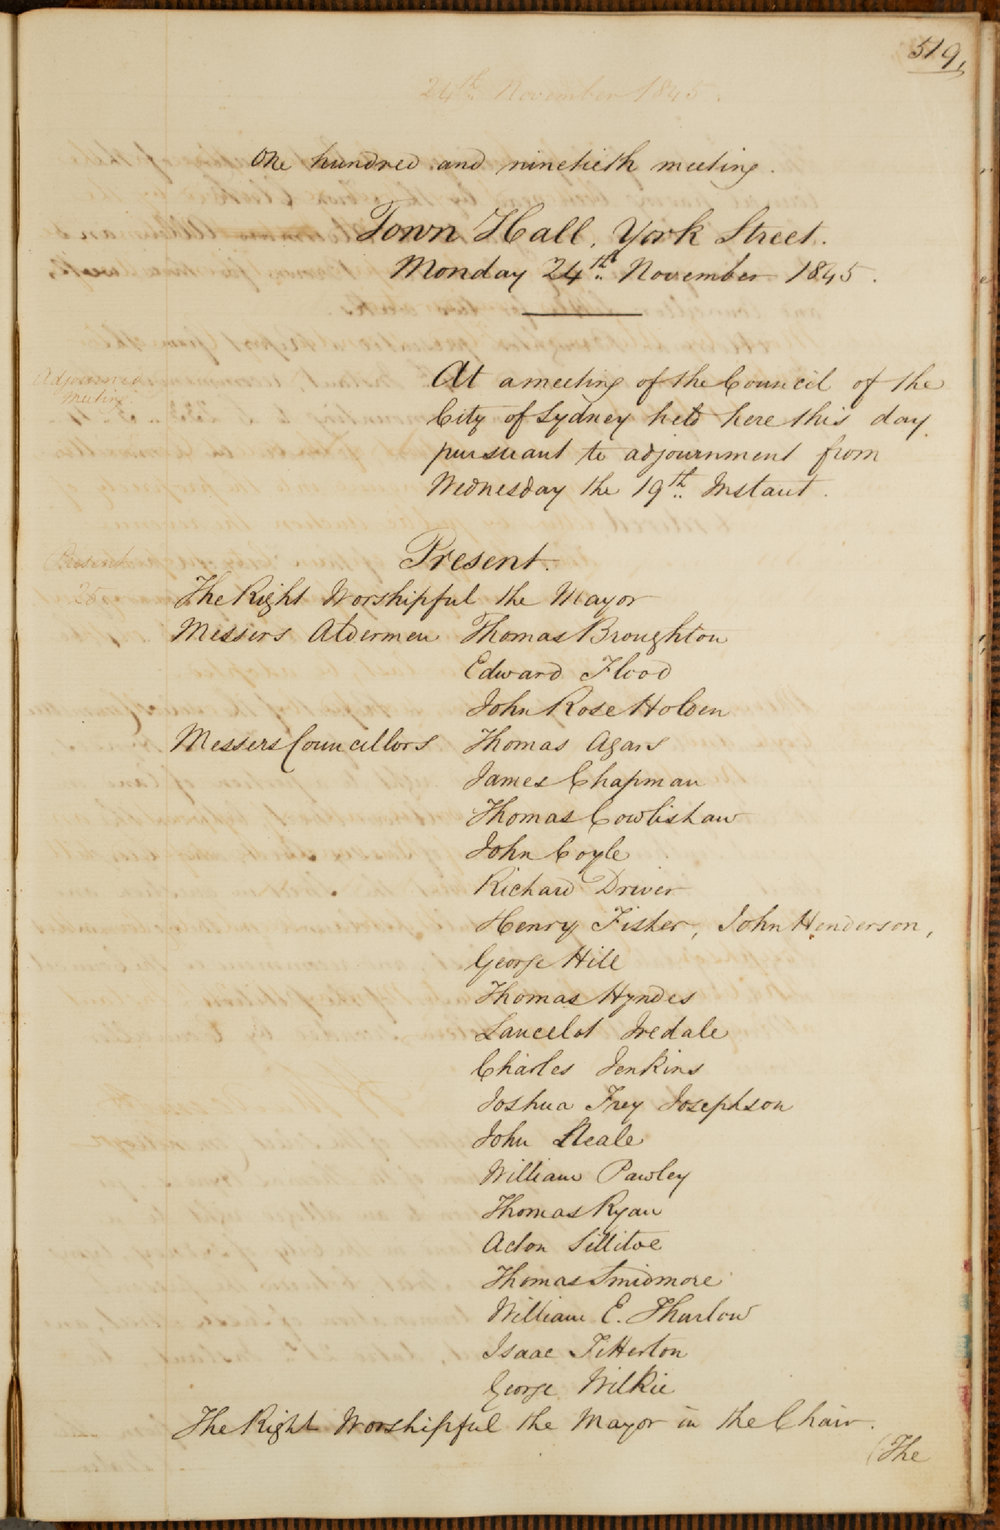 519,
24th November 1845.
One hundred and ninetieth meeting.
Town Hall, York Street.
Monday 24th November 1845.
Adjourned
Meeting.
At a meeting of the Council of the
City of Sydney held here this day
pursuant to adjournment from
Wednesday the 19th Instant.
Present.
Present
25
The Right Worshipful the Mayor
Messers Aldermen Thomas Broughton
Edward Flood
John Rose Holden
Messers Councillors Thomas Agars
James Chapman
Thomas Cowlishaw
John Coyle
Richard Driver
Henry Fisher, John Henderson,
George Hill
Thomas Hyndes
Lancelot Iredale
Charles Jenkins
Joshua Frey Josephson
John Neale
William Pawley
Thomas Ryan
Acton Sillitoe
Thomas Smidmore
William E. Tharlow
Isaac Titterton
George Wilkie
The Right Worshipful the Mayor in the Chair.
(The